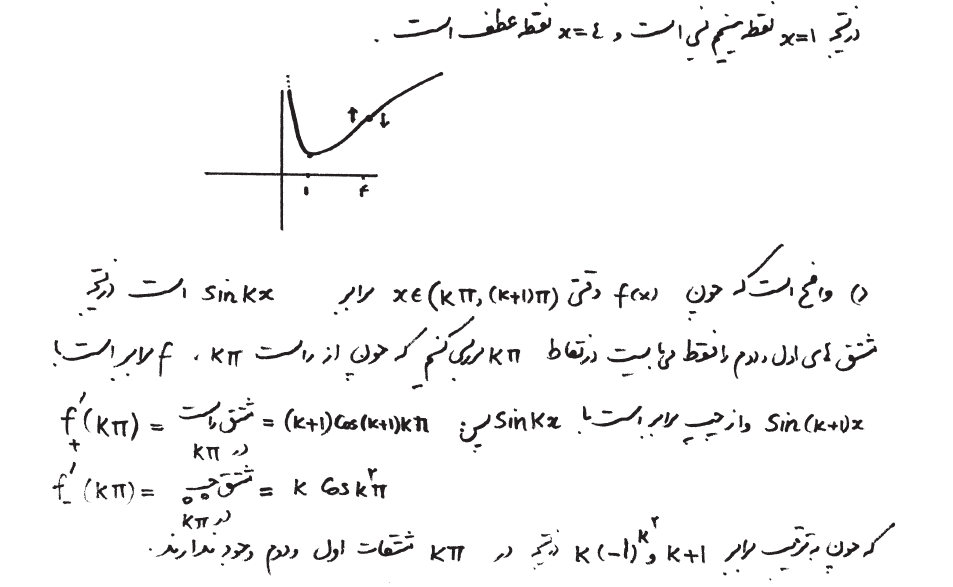 درنتیجه x=1 نقطه مینیمم نسبی است و x=٤ نقطه عطف است .
↑ ↓
۱ ۴
د) واضح است که چون f(x) وقتی x∈(kπ,(k+1)π) برابر sin kx است درنتیجه
مشتق های اول و دوم را فقط می‌بایست در نقاط kπ بررسی کنیم که چون از راست kπ ، f برابر است با
Sin(k+1)x و از چپ برابر است با Sin kx پس:
f'₊(kπ) = مشتق راست در kπ = (k+1)Cos(k+1)kπ
f'₋(kπ) = مشتق چپ در kπ = k Cos k²π
که چون به ترتیب برابر k+1 و k(-1)^k² درنتیجه در kπ مشتقات اول و دوم وجود ندارند.